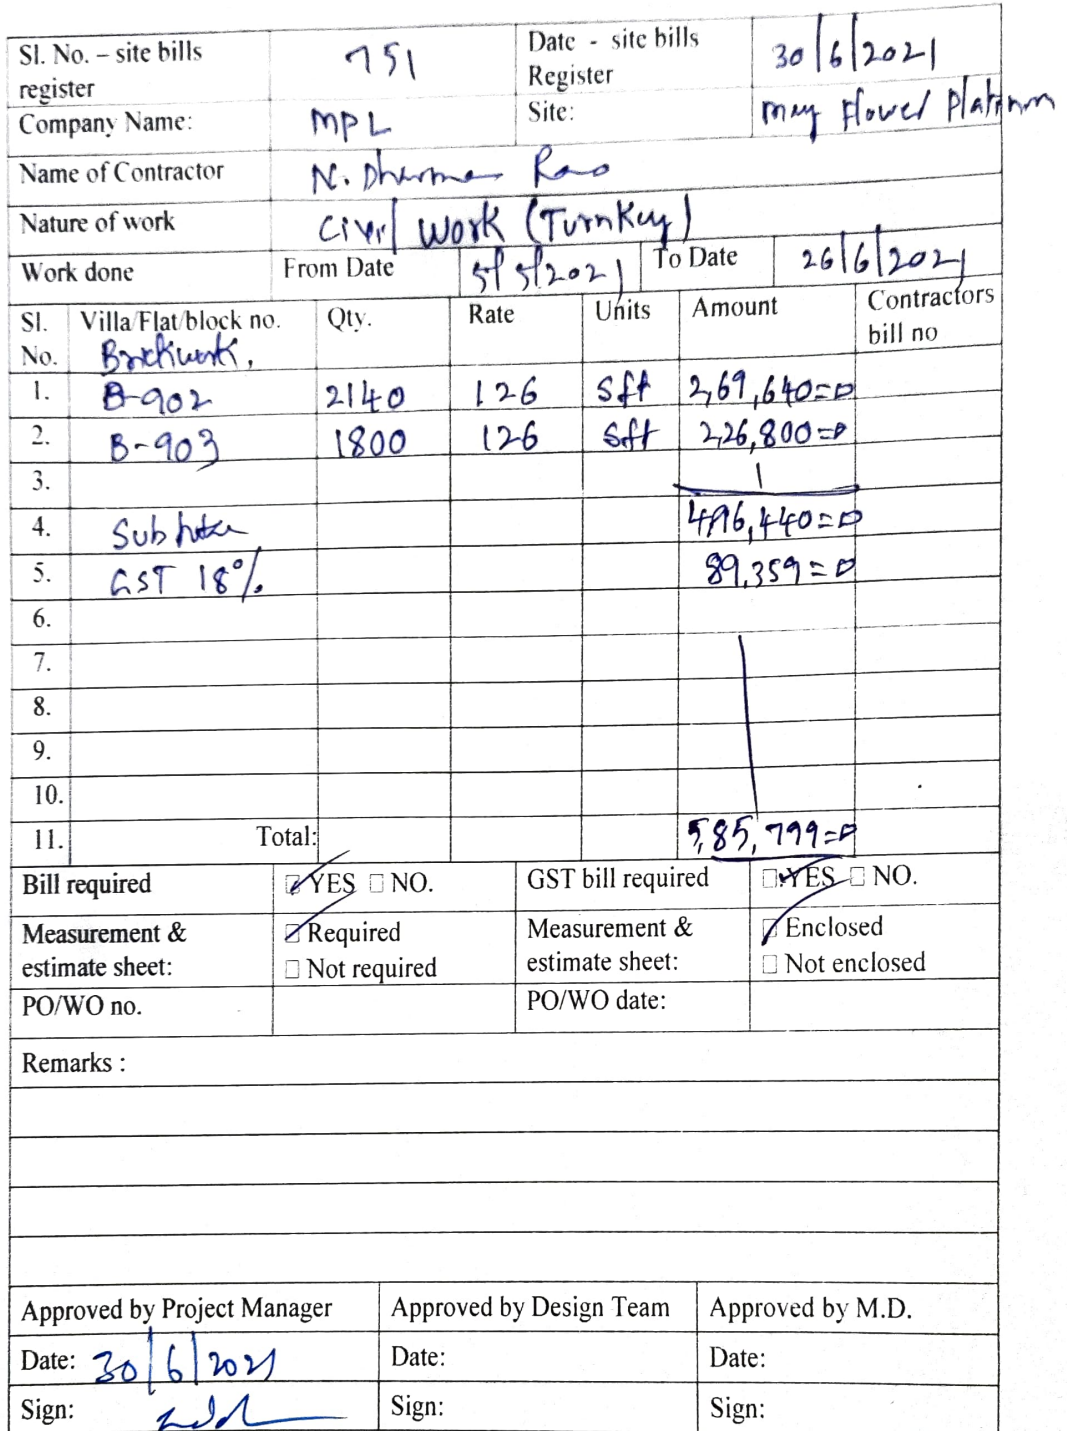 Sl. No. – site bills register 751 Date - site bills Register 30/6/2021
Company Name: MPL Site: May Flower Platinum
Name of Contractor N. Dharma Rao
Nature of work Civil Work (Turnkey)
Work done From Date 5/5/2021 To Date 26/6/2021
Sl. No. Villa/Flat/block no. Qty. Rate Units Amount Contractors bill no
Brickwork,
1. B-902 2140 126 Sft 2,69,640=0
2. B-903 1800 126 Sft 2,26,800=0
3.
4. Sub 4,96,440=0
5. GST 18% 89,359=0
6.
7.
8.
9.
10.
11. Total: 5,85,799=0
Bill required YES NO. GST bill required YES NO.
Measurement & estimate sheet: Required Measurement & estimate sheet: Enclosed
Not required Not enclosed
PO/WO no. PO/WO date:
Remarks :
Approved by Project Manager Approved by Design Team Approved by M.D.
Date: 30/6/2021 Date: Date:
Sign: Sign: Sign: